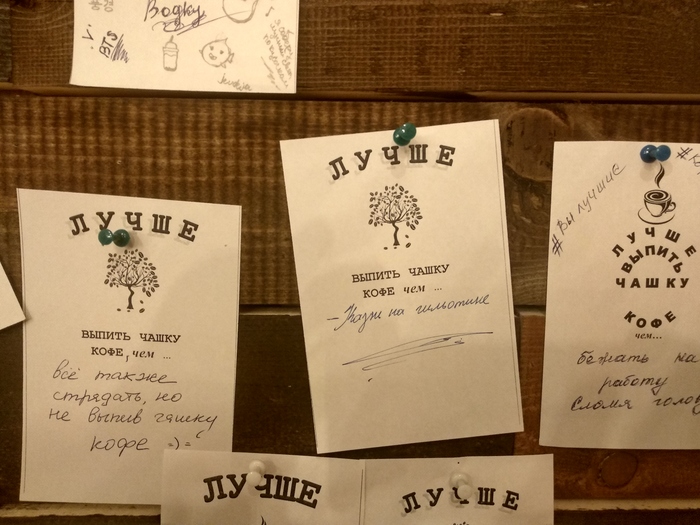 Водку
BTS
ЛУЧШЕ
ВЫПИТЬ ЧАШКУ
КОФЕ, чем ...
всё также
стрядать, но
не выпив чашку
кофе =)=
ЛУЧШЕ
ВЫПИТЬ ЧАШКУ
КОФЕ чем ...
на гильотине
#Вы лучшие
ЛУЧШЕ
ВЫПИТЬ
ЧАШКУ
КОФЕ
чем...
бежать на
работу
сломя голову
ЛУЧШЕ
ЛУЧШЕ